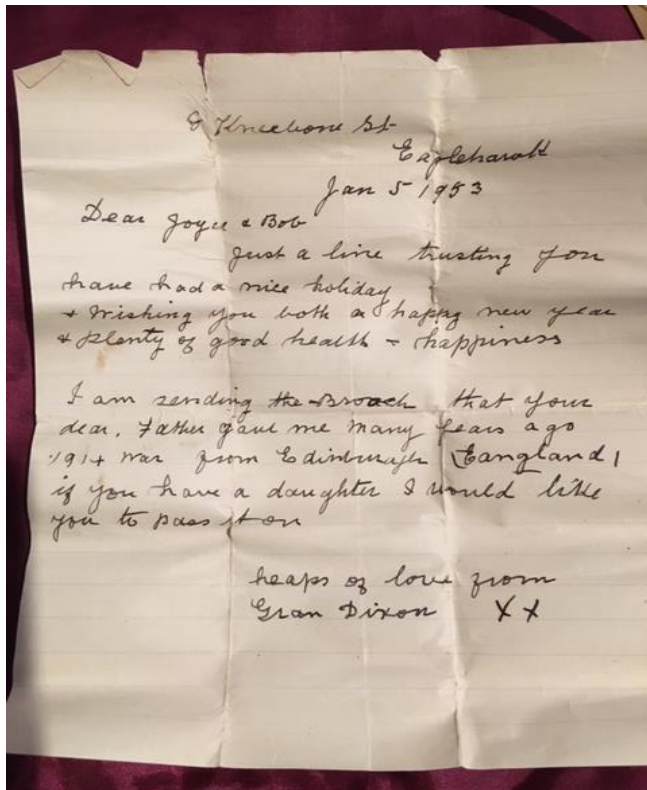 8 Kneebone St
Eaglehawk
Jan 5 1953
Dear Joyce & Bob
Just a line trusting you
have had a nice holiday
& Wishing you both a happy new year
& plenty of good health & happiness
I am sending the Broach that your
dear, Father gave me many years ago
1914 war from Edinburagh (Eangland)
if you have a daughter I would like
you to pass it on
heaps of love from
Gran Dixon XX